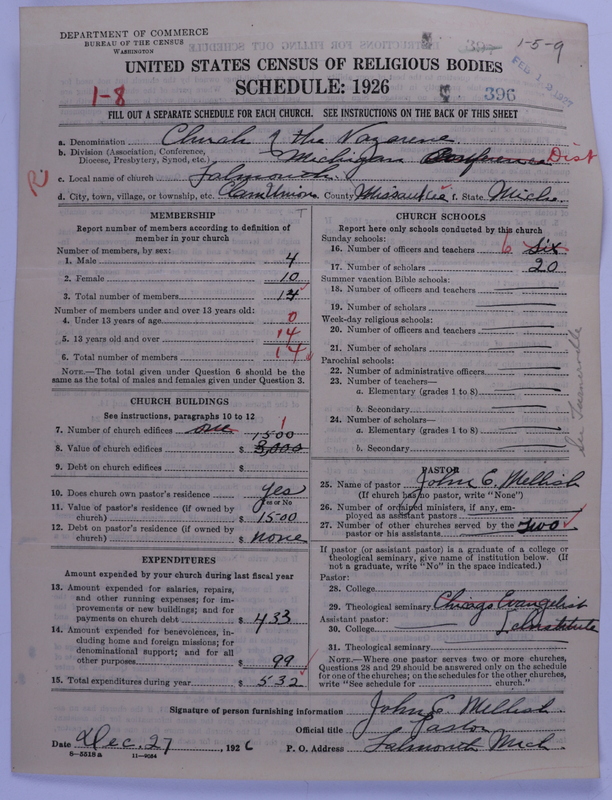 DEPARTMENT OF COMMERCE
BUREAU OF THE CENSUS
WASHINGTON
1-5-9
UNITED STATES CENSUS OF RELIGIOUS BODIES
SCHEDULE: 1926
1-8
396
FILL OUT A SEPARATE SCHEDULE FOR EACH CHURCH. SEE INSTRUCTIONS ON THE BACK OF THIS SHEET
a. Denomination Church of the Nazarene
b. Division (Association, Conference, Diocese, Presbytery, Synod, etc.) Michigan Conference Dist
c. Local name of church Falmouth
d. City, town, village, or township, etc. Clam Union County Missaukee f. State Mich.
MEMBERSHIP
Report number of members according to definition of
member in your church
Number of members, by sex:
1. Male 4
2. Female 10
3. Total number of members 14
Number of members under and over 13 years old:
4. Under 13 years of age 0
5. 13 years old and over 14
6. Total number of members 14
NOTE.—The total given under Question 6 should be
same as the total of males and females given under Question 3.
CHURCH BUILDINGS
See instructions, paragraphs 10 to 12
7. Number of church edifices one 1
8. Value of church edifices $ 3,000 1500
9. Debt on church edifices $
10. Does church own pastor's residence yes
Yes or No
11. Value of pastor's residence (if owned by
church) $ 1500
12. Debt on pastor's residence (if owned by
church) $ none
EXPENDITURES
Amount expended by your church during last fiscal year
13. Amount expended for salaries, repairs,
and other running expenses; for im-
provements or new buildings; and for
payments on church debt $ 433
14. Amount expended for benevolences, in-
cluding home and foreign missions; for
denominational support; and for all
other purposes $ 99
15. Total expenditures during year $ 532
CHURCH SCHOOLS
Report here only schools conducted by this church
Sunday schools:
16. Number of officers and teachers 6 six
17. Number of scholars 20
Summer vacation Bible schools:
18. Number of officers and teachers
19. Number of scholars
Week-day religious schools:
20. Number of officers and teachers
21. Number of scholars
Parochial schools:
22. Number of administrative officers
23. Number of teachers—
a. Elementary (grades 1 to 8)
b. Secondary
24. Number of scholars—
a. Elementary (grades 1 to 8)
b. Secondary
PASTOR
25. Name of pastor John E. Mellish
(If church has no pastor, write "None")
26. Number of ordained ministers, if any, em-
ployed as assistant pastors
27. Number of other churches served by the
pastor or his assistants two
If pastor (or assistant pastor) is a graduate of a college or
theological seminary, give name of institution below. (If
not a graduate, write "No" in the space indicated.)
Pastor:
28. College
29. Theological seminary Chicago Evangelist
Assistant pastor: Institute
30. College
31. Theological seminary
NOTE.—Where one pastor serves two or more churches,
Questions 28 and 29 should be answered only on the schedule
for one of the churches; on the schedules for the other churches,
write "See schedule for church."
Signature of person furnishing information John E. Mellish
Official title Pastor
Date Dec. 27, 1926 P. O. Address Falmouth Mich.
8-5518a 11-9084